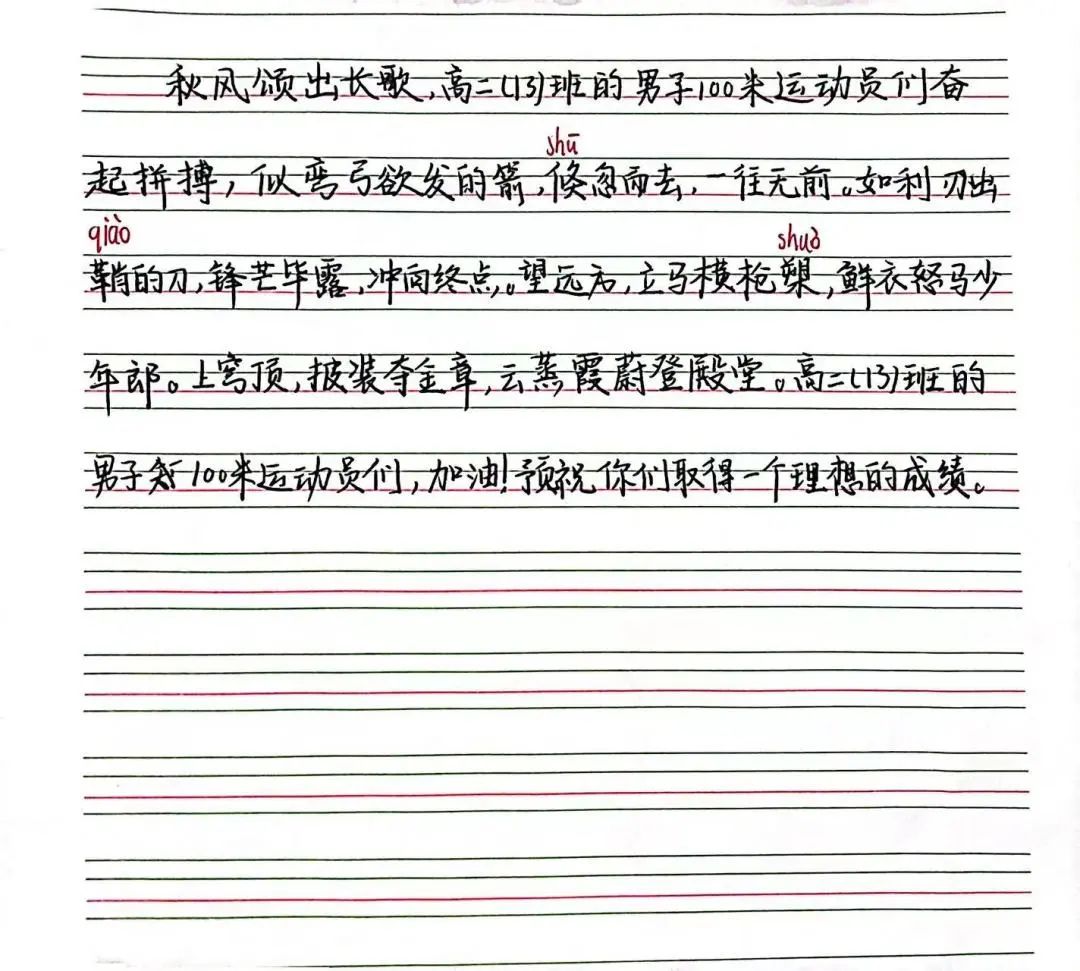 秋风颂出长歌,高二(13)班的男子100米运动员们奋
shū
起拼搏,似弯弓欲发的箭,倏忽而去,一往无前。如利刃出
qiào shuò
鞘的刀,锋芒毕露,冲向终点。望远方,立马横枪槊,鲜衣怒马少
年郎。上穹顶,披装夺金章,云蒸霞蔚登殿堂。高二(13)班的
男子100米运动员们,加油!预祝你们取得一个理想的成绩。